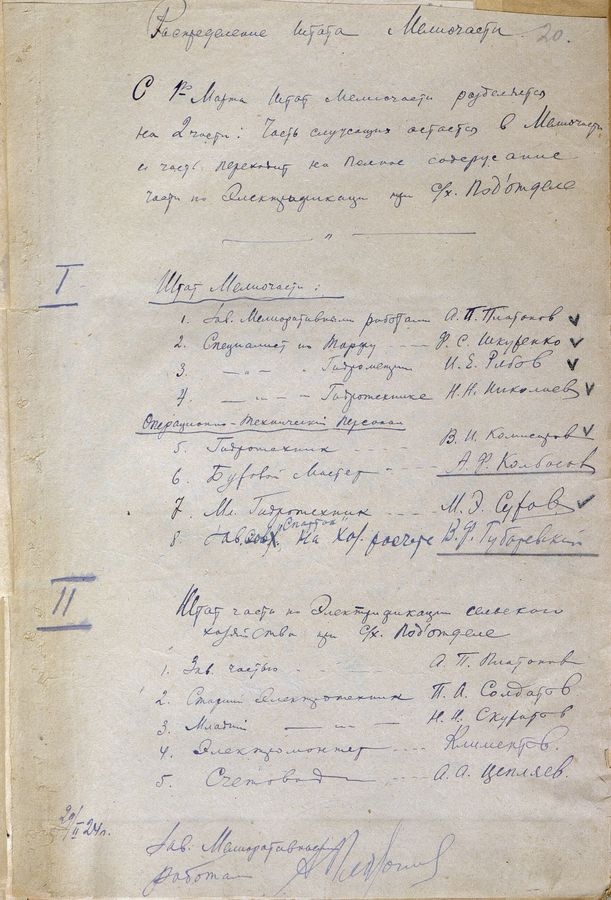 Распределение штата Мелиочасти. 20.
С 1го Марта штат Мелиочасти разделяется
на 2 части: Часть служащих остается в Мелиочасти
и часть переходит на полное содержание
части по Электрификации при с/х. Под'отделе
— " —
I
Штат Мелиочасти:
1. Зав. Мелиоративными работами А. П. Платонов
2. Специалист по Торфу — Ф. С. Шкуренко
3 — " — Гидрометрии И. Е. Рябов
4. — " — Гидротехнике Н. Н. Николаев
Операционно-Технический Персонал
5. Гидротехник - - - В. И. Комисаров
6. Буровой Мастер - - - А. Ф. Колбасов
7. Мл. Гидротехник - - - М. Э. Суров
8. Зав. сов.х. "Спартак" На Хоз. расчете В. Ф. Губаревский
II
Штат части по Электрификации сельского
хозяйства при с/х. Под'отделе
1. Зав. частью - - - А. П. Платонов
2. Старший Электротехник П. А. Солдатов
3. Младший — " — Н. И. Скуратов
4. Электромонтер - - - Климентов.
5. Счетовод - - - А. А. Цепляев.
29/II 24 г.
Зав. Мелиоративн
работам АПлатонов